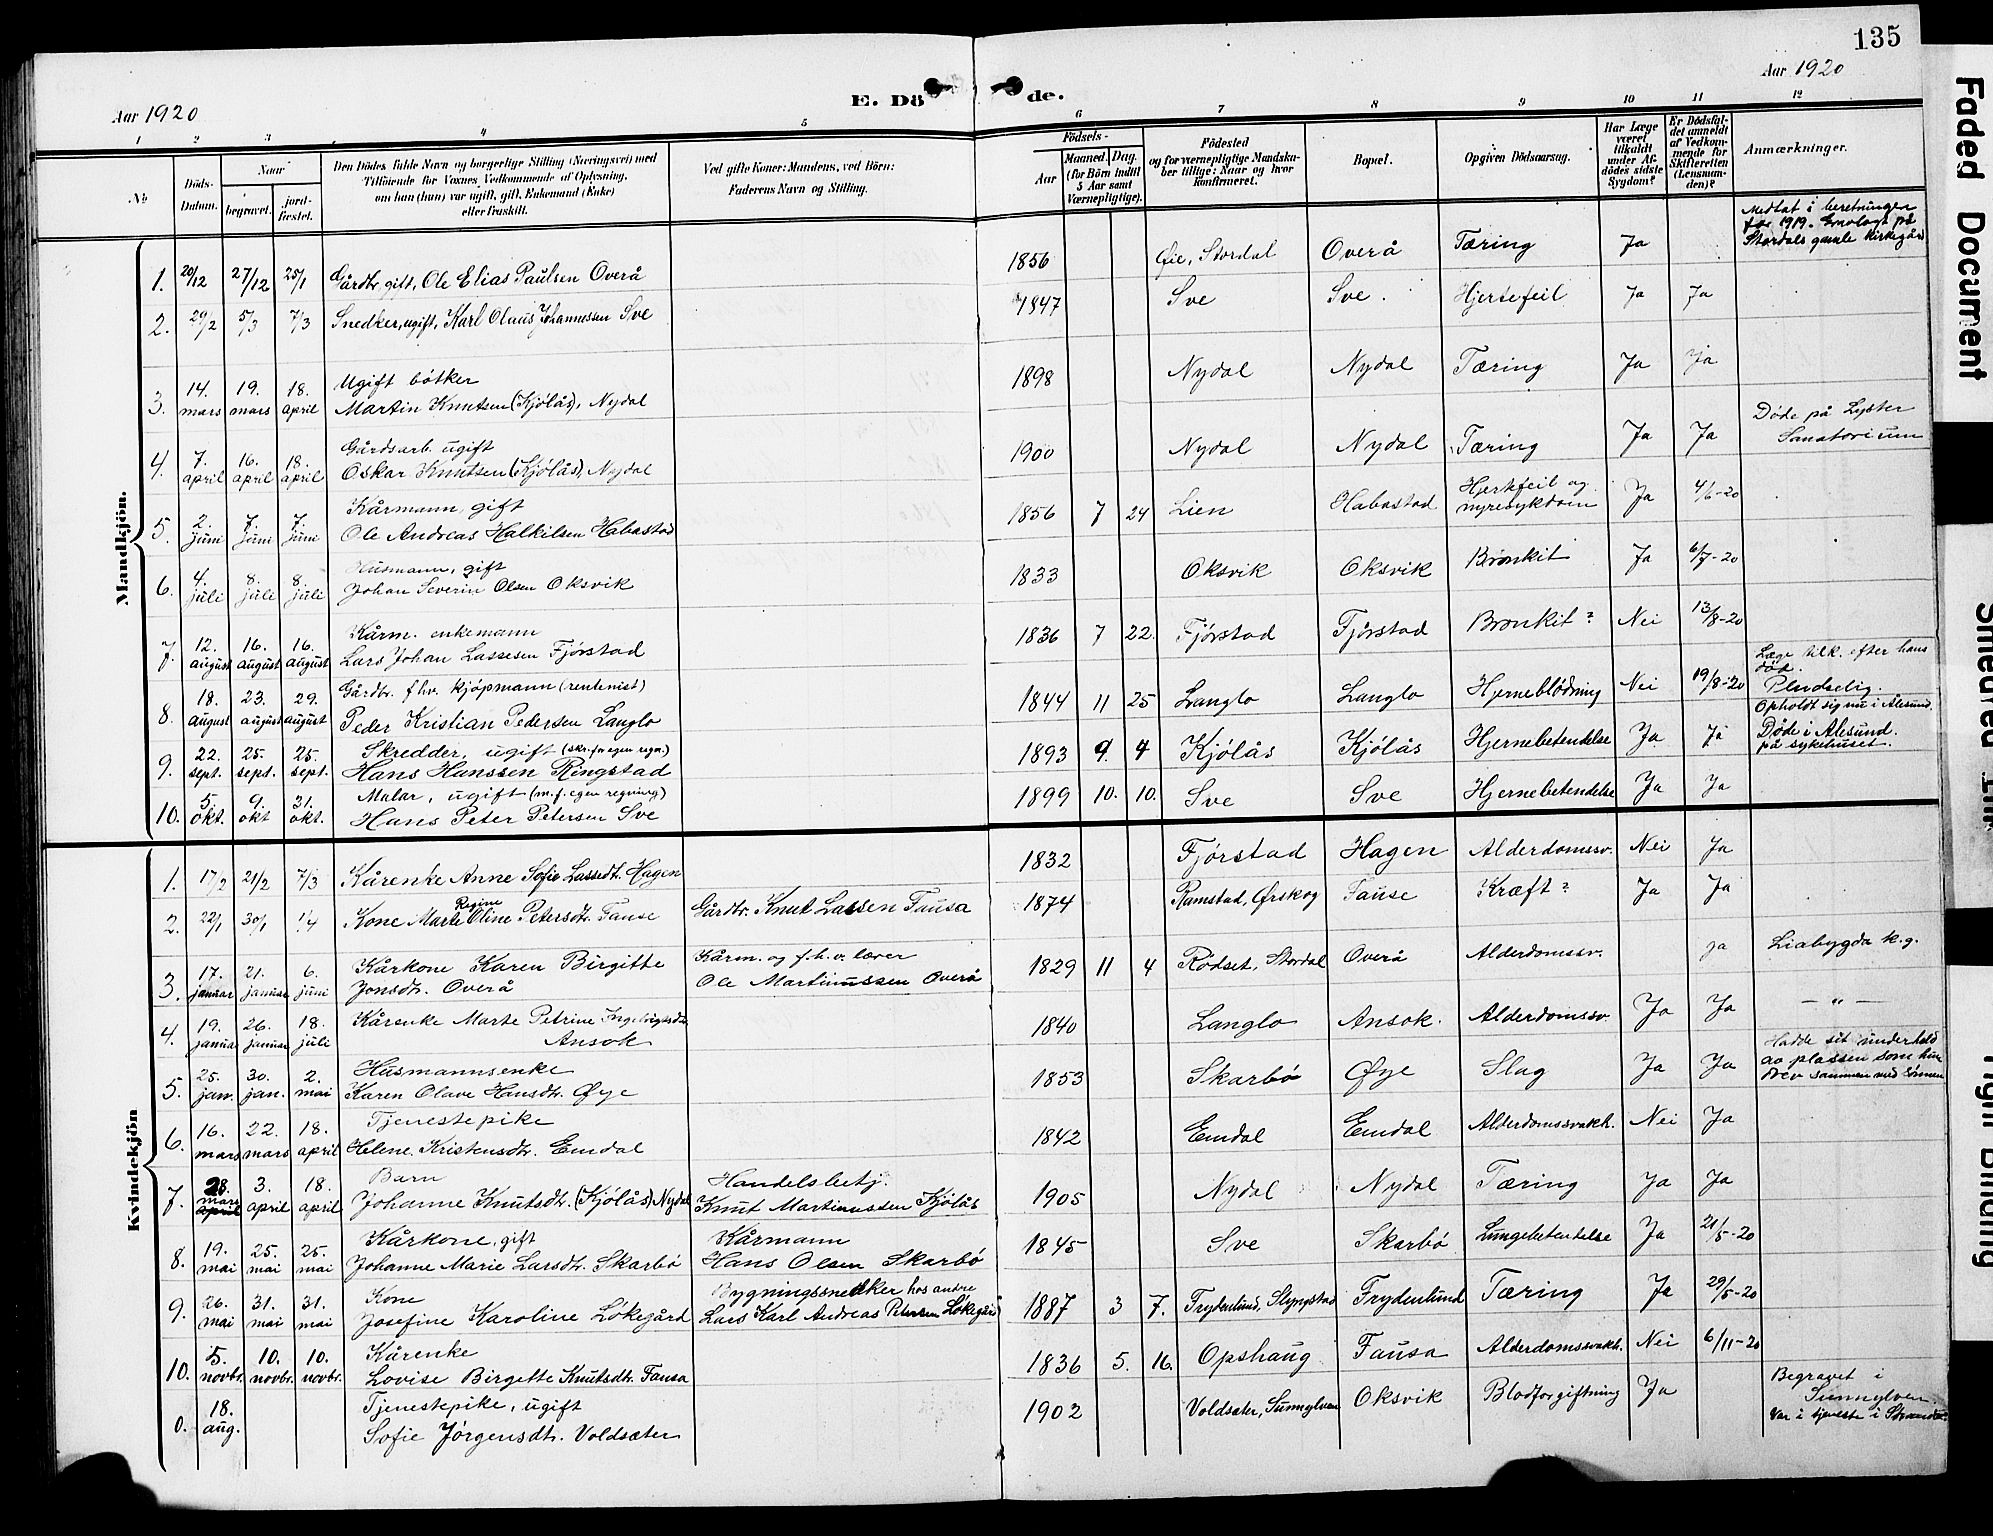 135
Aar 1920
E. Döde.
Aar 1920
1 2 3 4 5 6 7 8 9 10 11 12
No
Döds-Datum.
Naar
begravet.
jordfæstet.
Den Dödes fulde Navn og borgerlige Stilling (Næringsvei) med
Tilföiende for Voxnes Vedkommende af Oplysning,
om han (hun) var ugift, gift, Enkemand (Enke)
eller fraskilt.
Ved gifte Koner: Mandens, ved Börn:
Faderens Navn og Stilling.
Födsels-
Aar
Maaned. Dag.
(for Börn indtil
5 Aar samt
Værnepligtige).
Födested
og for værnepligtige Mandskaber tillige: Naar og hvor
konfirmeret.
Bopæl.
Opgiven Dödsaarsag.
Har Læge
været
tilkaldt
under Afdödes sidste
Sygdom?
Er Dödsfaldet anmeldt
af Vedkommende for
Skifteretten
(Lensmanden)?
Anmærkninger.
Mandkjön.
1. 20/12 27/12 25/1 Gårdbr. gift, Ole Elias Paulsen Overå 1856 Øie, Stordal Overå Tæring Ja
Medtat i beretningen
for 1919. Gravlagt på
Stordals gamle kirkegård
2. 29/2 5/3 7/3 Snedker, ugift, Karl Olaus Johannessen Sve 1847 Sve Sve. Hjertefeil Ja Ja
3. 14. mars 19. mars 18. april Ugift bøtker
Martin Knutsen (Kjölås), Nydal 1898 Nydal Nydal Tæring Ja Ja
4. 7. april 16. april 18. april Gårdsarb. ugift
Oskar Knutsen (Kjölås), Nydal 1900 Nydal Nydal Tæring Ja Ja
Døde på Lyster
Sanatorium
5. 2. juni 7. juni 7. juni Kårmann, gift
Ole Andreas Halkilsen Habostad 1856 7 24 Lien Habostad Hjertefeil og
nyresykdom Ja 4/6-20
6. 4. juli 8. juli 8. juli Husmann, gift
Johan Severin Olsen Oksvik 1833 Oksvik Oksvik Bronkit Ja 6/7-20
7. 12. august 16. august 16. august Kårm. enkemann
Lars Johan Lassesen Fjørstad 1836 7 22. Fjørstad Fjørstad Bronkit? Nei 13/8-20
8. 18. august 23. august 29. august Gårdbr. f.hv. kjøpmann (rentenist)
Peder Kristian Pedersen Langlo 1844 11 25 Langlo Langlo Hjerneblødning Nei 19/8-20
Læge tilk. efter hans
død.
Pludselig.
Opholdt sig nu i Ålesund.
9. 22. sept. 25. sept. 25. sept. Skredder, ugift (skr. for egen regn.)
Hans Hanssen Ringstad 1893 9. 4 Kjölås Kjölås Hjernebetendelse Ja Ja
Døde i Ålesund.
på sykehuset.
10. 5. okt. 9. okt 31. okt. Malar, ugift (m. f. egen regning)
Hans Peter Petersen Sve 1899 10. 10. Sve Sve Hjernebetendelse Ja Ja
Kvindekjön
1. 17/2 21/2 7/3 Kårenke Anne Sofie Lassedt. Hagen 1832 Fjørstad Hagen Alderdomssv. Nei Ja
2. 22/1 30/1 1/4 Kone Marte Regine Oline Petersdtr. Fause Gårdbr. Knut Lassen Fausa 1874 Ramstad, Ørskog Fause Kræft? Ja Ja
3. 17. januar 21. januar 6. juni Kårkone Karen Birgitte
Jonsdtr. Overå
Kårm. og f.h.v. lærer
Ole Martinussen Overå 1829 11 4 Rødset, Stordal Overå Alderdomssv. Ja Liabygda k.g.
4. 19. januar 26. januar 18. juli Kårenke Marte Petrine Ingebrigtsdtr.
Ansok 1840 Langlo Ansok. Alderdomssv. Ja Ja — " —
5. 25. jan. 30. jan. 2. mai Husmannsenke
Karen Olave Hansdtr. Øye 1853 Skarbø Øye Slag Ja Ja
Hadde sit underhold
av plassen som hun
drev sammen med sønnen
6. 16. mars 22. mars 18. april Tjenestepike
Helene Kristensdtr. Emdal 1842 Emdal Emdal Alderdomssvakh. Nei Ja
7. 28. mars april 3. april 18. april Barn
Johanne Knutsdtr. (Kjölås) Nydal
Handelsbetj.
Knut Martinussen Kjölås 1905 Nydal Nydal Tæring Ja Ja
8. 19. mai 25. mai 25. mai Kårkone, gift
Johanne Marie Larsdtr. Skarbø
Kårmann
Hans Olsen Skarbø 1845 Sve Skarbø Lungebetendelse Ja 21/5-20
9. 26. mai 31. mai 31. mai Kone
Josefine Karoline Løkegård
Bygningssnedker hos andre
Lars Karl Andreas Petersen Løkegård 1887 3 7. Frydenlund, Slyngstad Frydenlund Tæring Ja 29/5-20
10. 5. novbr. 10. novbr. 10. novbr. Kårenke
Lovise Birgette Knutsdtr. Fausa 1836 5. 16. Opshaug Fausa Alderdomssvakh. Nei 6/11-20
0. 18. aug. Tjenestepike, ugift
Sofie Jørgensdtr. Voldsæter 1902 Voldsæter, Sunnylven Oksvik Blodforgiftning Ja
Begravet i
Sunnylven
Var i tjeneste i Stranda
Faded Document
Tight Binding